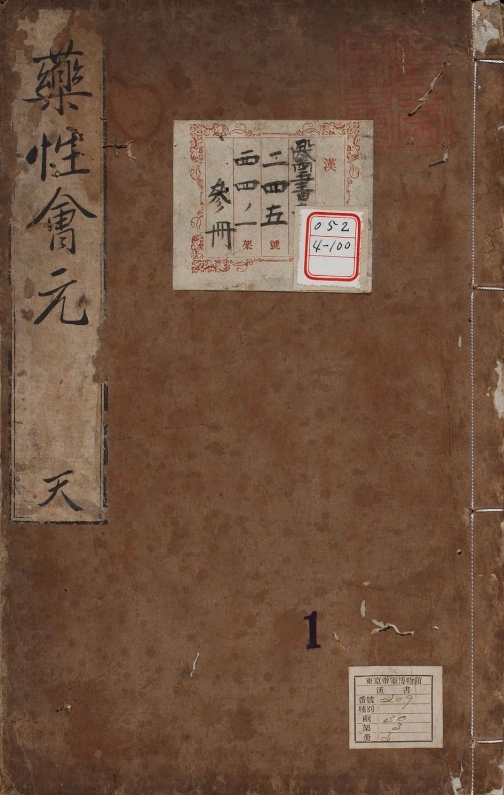 藥性會元
天
漢
醫書
二四五
號
一四ノ一
架
參冊
052
4-100
1
東京帝室博物館
漢書
番號 209
種別
函 30
架 3
冊 3